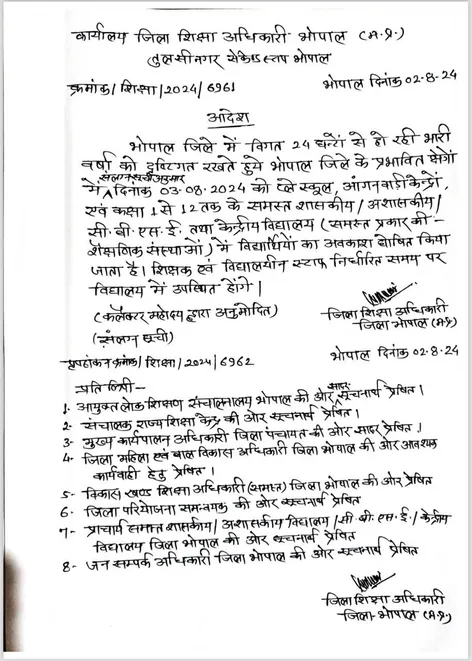 कार्यालय जिला शिक्षा अधिकारी भोपाल (म.प्र.)
तुलसीनगर सेकेण्ड स्टाप भोपाल
क्रमांक/शिक्षा/2024/6961 भोपाल दिनांक 02-8-24
आदेश
भोपाल जिले में विगत 24 घन्टों से हो रही भारी
वर्षा को दृष्टिगत रखते हुये भोपाल जिले के प्रभावित क्षेत्रों
संलग्न सूची अनुसार
में दिनांक 03-08-2024 को प्ले स्कूल, आंगनवाडी केन्द्रों,
एवं कक्षा 1 से 12 तक के समस्त शासकीय/अशासकीय/
सी.बी.एस.ई. तथा केन्द्रीय विद्यालय (समस्त प्रकार की-
शैक्षणिक संस्थाओं) में विद्यार्थियों का अवकाश घोषित किया
जाता है। शिक्षक एवं विद्यालयीन स्टाफ निर्धारित समय पर
विद्यालय में उपस्थित होंगे।
(कलेक्टर महोदय द्वारा अनुमोदित)
(संलग्न सूची)
जिला शिक्षा अधिकारी
जिला भोपाल (म.प्र.)
पृष्ठांकन क्रमांक/शिक्षा/2024/6962 भोपाल दिनांक 02-8-24
प्रतिलिपी-
1- आयुक्त लोक शिक्षण संचालनालय भोपाल की ओर सादर सूचनार्थ प्रेषित।
2- संचालक राज्य शिक्षा केन्द्र की ओर सूचनार्थ प्रेषित।
3- मुख्य कार्यपालन अधिकारी जिला पंचायत की ओर सादर प्रेषित।
4- जिला महिला एवं बाल विकास अधिकारी जिला भोपाल की ओर आवश्यक
कार्यवाही हेतु प्रेषित।
5- विकास खण्ड शिक्षा अधिकारी (समस्त) जिला भोपाल की ओर प्रेषित
6- जिला परियोजना समन्वयक की ओर सूचनार्थ प्रेषित
7- प्राचार्य समस्त शासकीय/अशासकीय विद्यालय/सी.बी.एस.ई./केन्द्रीय
विद्यालय जिला भोपाल की ओर सूचनार्थ प्रेषित
8- जन सम्पर्क अधिकारी जिला भोपाल की ओर सूचनार्थ प्रेषित
जिला शिक्षा अधिकारी
जिला-भोपाल (म.प्र.)